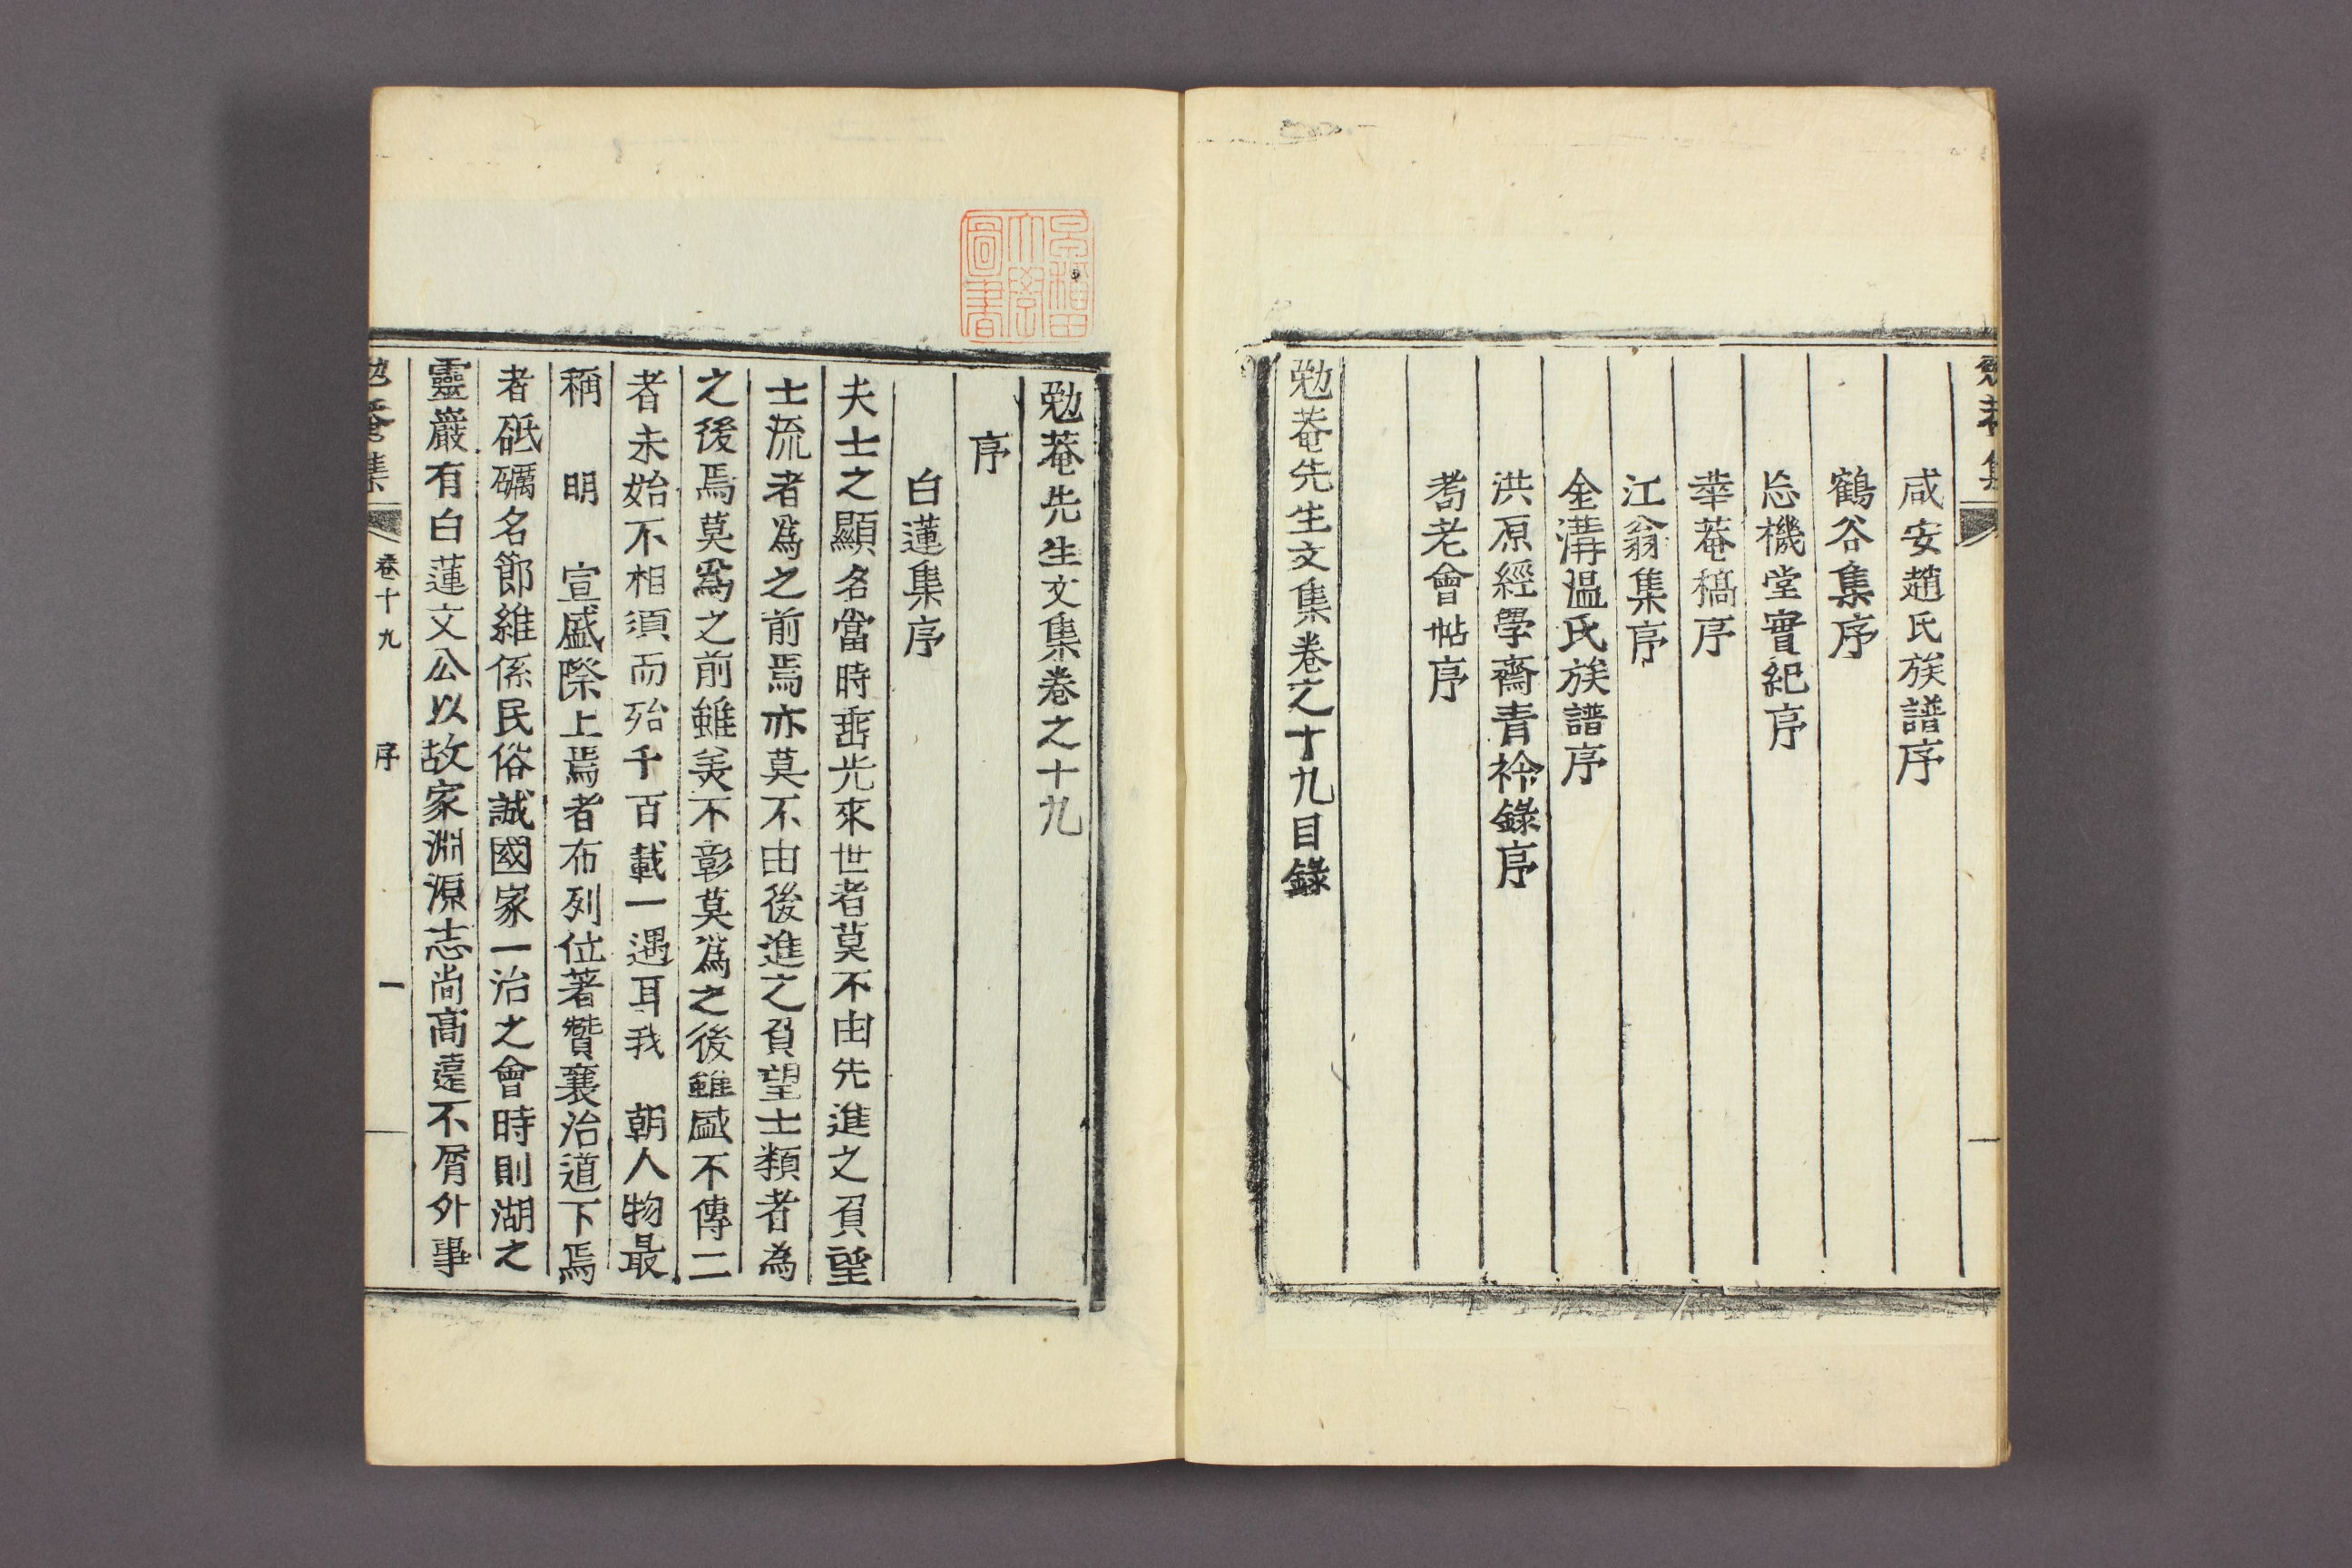 勉菴集
咸安趙氏族譜序
鶴谷集序
忘機堂實紀序
華菴稿序
江翁集序
金溝溫氏族譜序
洪原經學齋青衿錄序
耆老會帖序
勉菴先生文集卷之十九目錄
早稻田大學圖書
勉菴先生文集卷之十九
序
白蓮集序
夫士之顯名當時垂光來世者莫不由先進之負望
士流者爲之前焉亦莫不由後進之負望士類者為
之後焉莫爲之前雖美不彰莫爲之後雖盛不傳二
者未始不相須而殆千百載一遇耳我　朝人物最
稱　明　宣盛際上焉者布列位著贊襄治道下焉
者砥礪名節維係民俗誠國家一治之會時則湖之
靈巖有白蓮文公以故家淵源志尚高遠不屑外事
勉菴集　卷十九　序　一